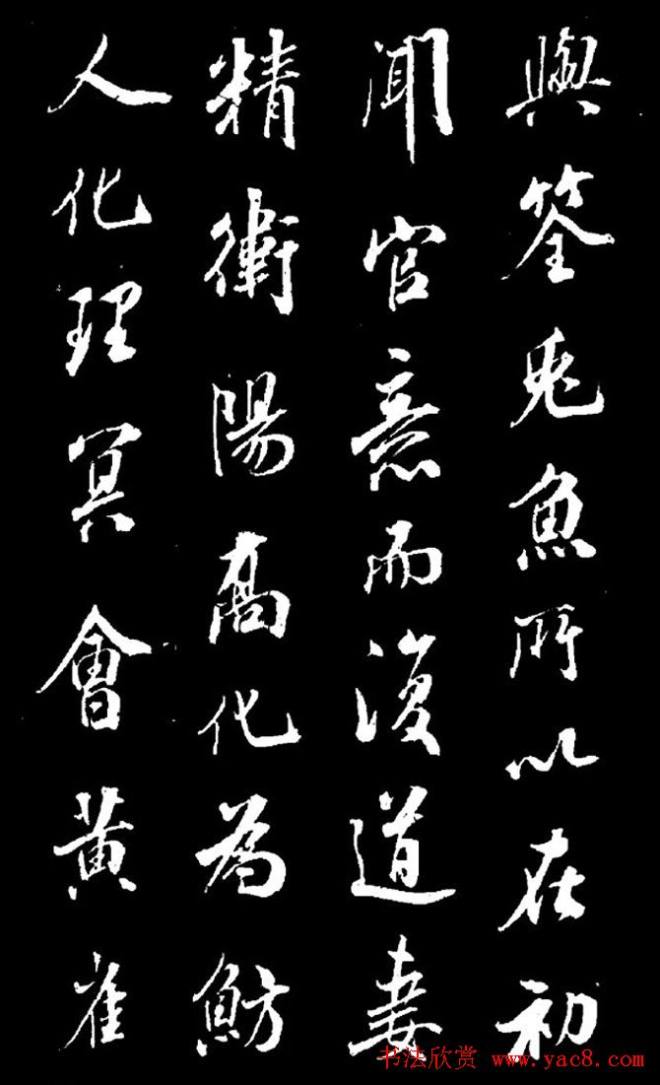 與筌兎魚所以在初
聞官意而後道妻
精衛陽高化為魴
人化理冥會黃雀
书法欣赏 www.yac8.com